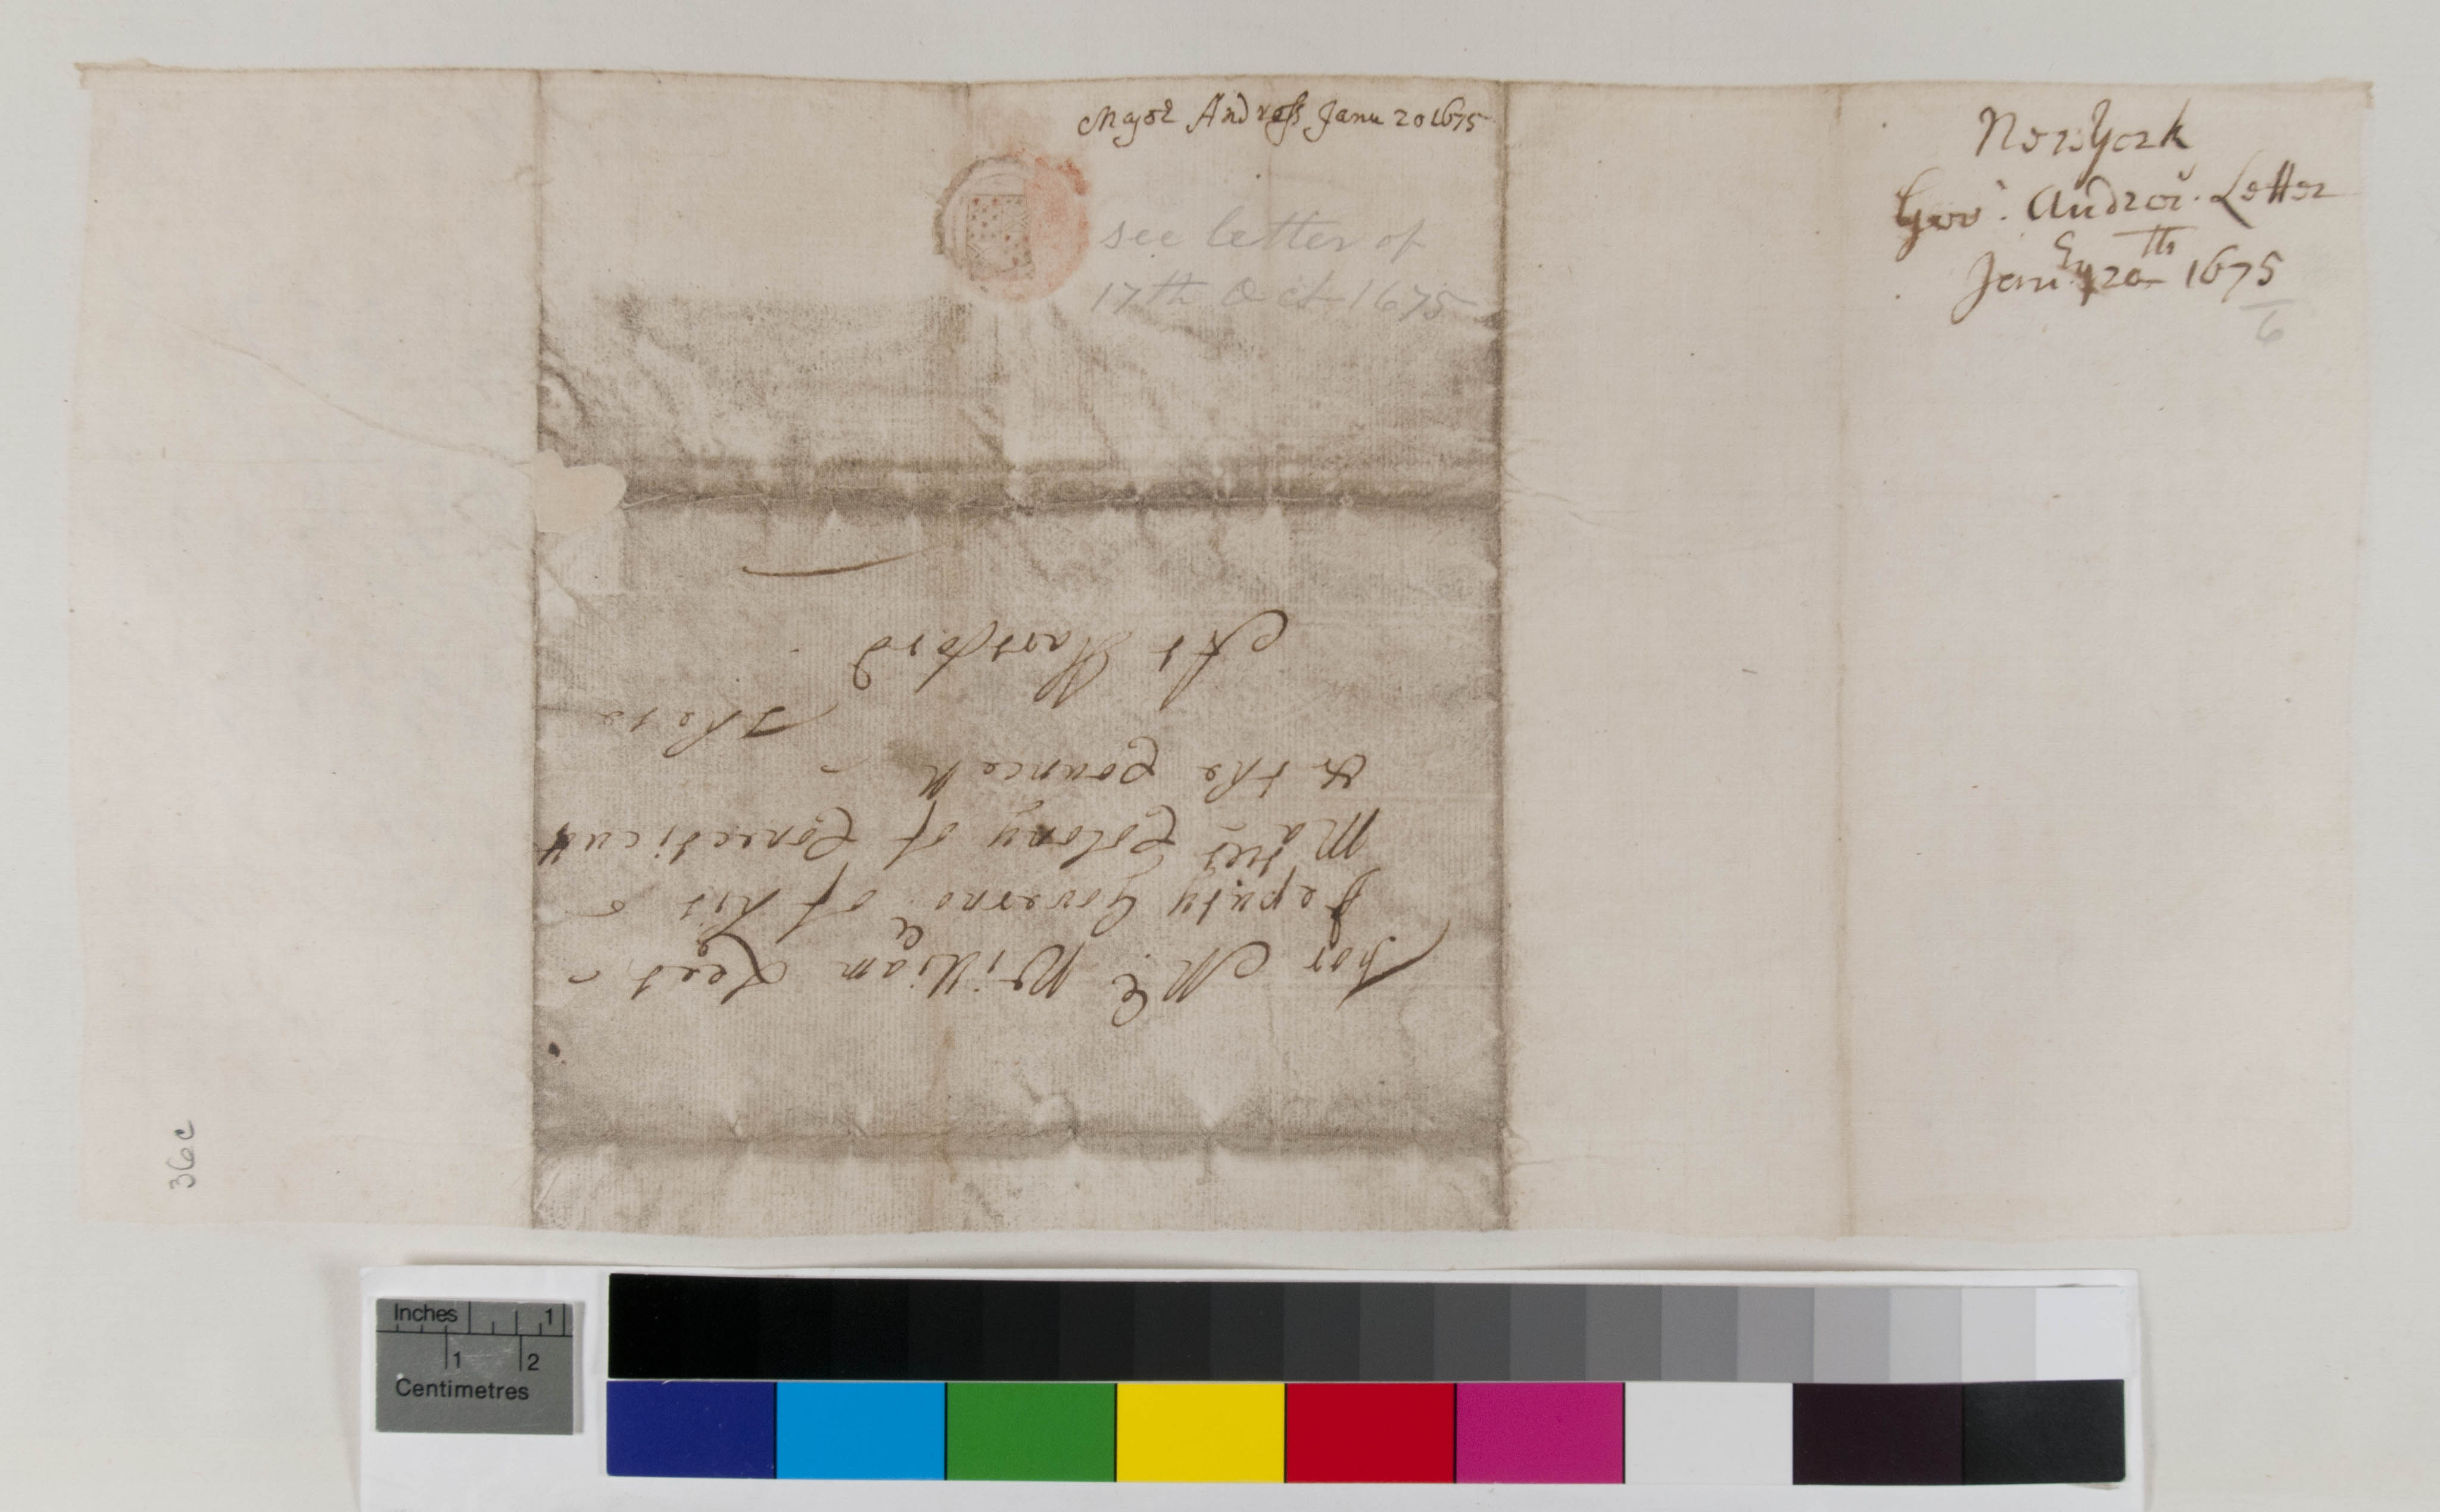 Major Andross Janu 20 1675
see letter of
17th Oct 1675
New York
Govr. Andros. Letter
Janry 20th 1675
6
For Mr. William Leet
Deputy Governor. of his
Maties Colony of Conecticutt
& the Councell
there
At Hartford
36c
Inches 1
1 2
Centimetres